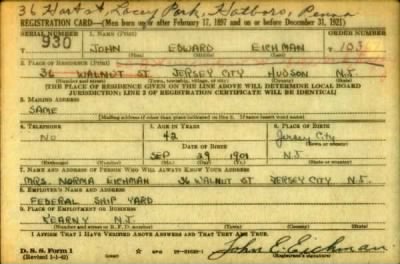 36 Hart St. Lacey Park, Hatboro, Penna
REGISTRATION CARD—(Men born on or after February 17, 1897 and on or before December 31, 1921)
SERIAL NUMBER
1. NAME (Print)
ORDER NUMBER
930
JOHN EDWARD EICHMAN
(First) (Middle) (Last)
2. PLACE OF RESIDENCE (Print)
36 WALNUT ST JERSEY CITY HUDSON N.J.
(Number and street) (Town, township, village, or city) (County) (State)
[THE PLACE OF RESIDENCE GIVEN ON THE LINE ABOVE WILL DETERMINE LOCAL BOARD
JURISDICTION; LINE 2 OF REGISTRATION CERTIFICATE WILL BE IDENTICAL]
3. MAILING ADDRESS
SAME
[Mailing address if other than place indicated on line 2. If same insert word same]
4. TELEPHONE
5. AGE IN YEARS
6. PLACE OF BIRTH
NO
42
Jersey City
DATE OF BIRTH
(Town or county)
SEP 29 1901
N.J.
(Exchange) (Number)
(Mo.) (Day) (Yr.)
(State or country)
7. NAME AND ADDRESS OF PERSON WHO WILL ALWAYS KNOW YOUR ADDRESS
MRS. NORMA EICHMAN 36 WALNUT ST JERSEY CITY N.J.
8. EMPLOYER'S NAME AND ADDRESS
FEDERAL SHIP YARD
9. PLACE OF EMPLOYMENT OR BUSINESS
KEARNY N.J.
(Number and street or R. F. D. number) (Town) (County) (State)
I AFFIRM THAT I HAVE VERIFIED ABOVE ANSWERS AND THAT THEY ARE TRUE.
D. S. S. Form 1
(Revised 1-1-42)
John E. Eichman